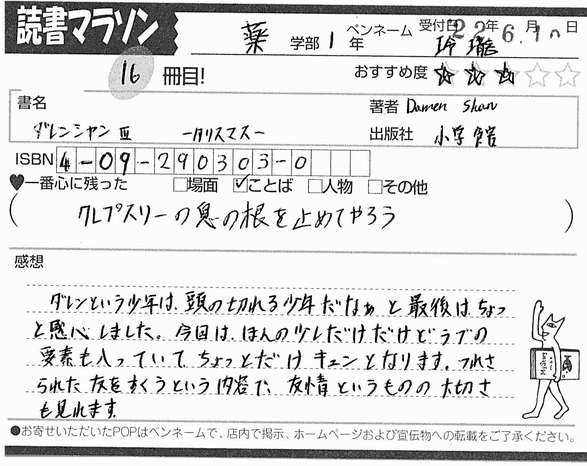 読書マラソン
薬 学部 1 年
ペンネーム 玲瓏
受付日 22年 6月 10日
16 冊目!
おすすめ度 ★★★☆☆
書名
ダレンシャン Ⅲ ークリスマスー
著者 Darren Shan
出版社 小学館
ISBN 4-09-290303-0
♥一番心に残った □場面 ☑ことば □人物 □その他
( クレプスリーの息の根を止めてやろう )
感想
ダレンという少年は、頭の切れる少年だなぁ と最後はちょっ
と感心しました。今回は、ほんの少しだけだけどラブの
要素も入っていて、ちょっとだけ キュンとなります。つれさ
られた友をすくうという内容で、友情というものの大切さ
も見れます。
●お寄せいただいたPOPはペンネームで、店内で掲示、ホームページおよび宣伝物への転載をご了承ください。